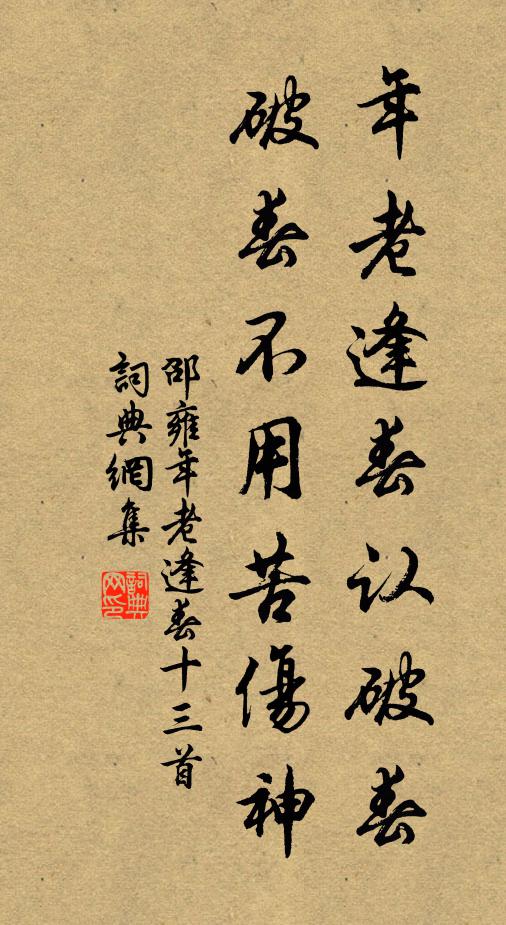 年老逢春认破春
破春不用苦傷神
邵雍年老逢春十三首
詞典網集
詞典网印